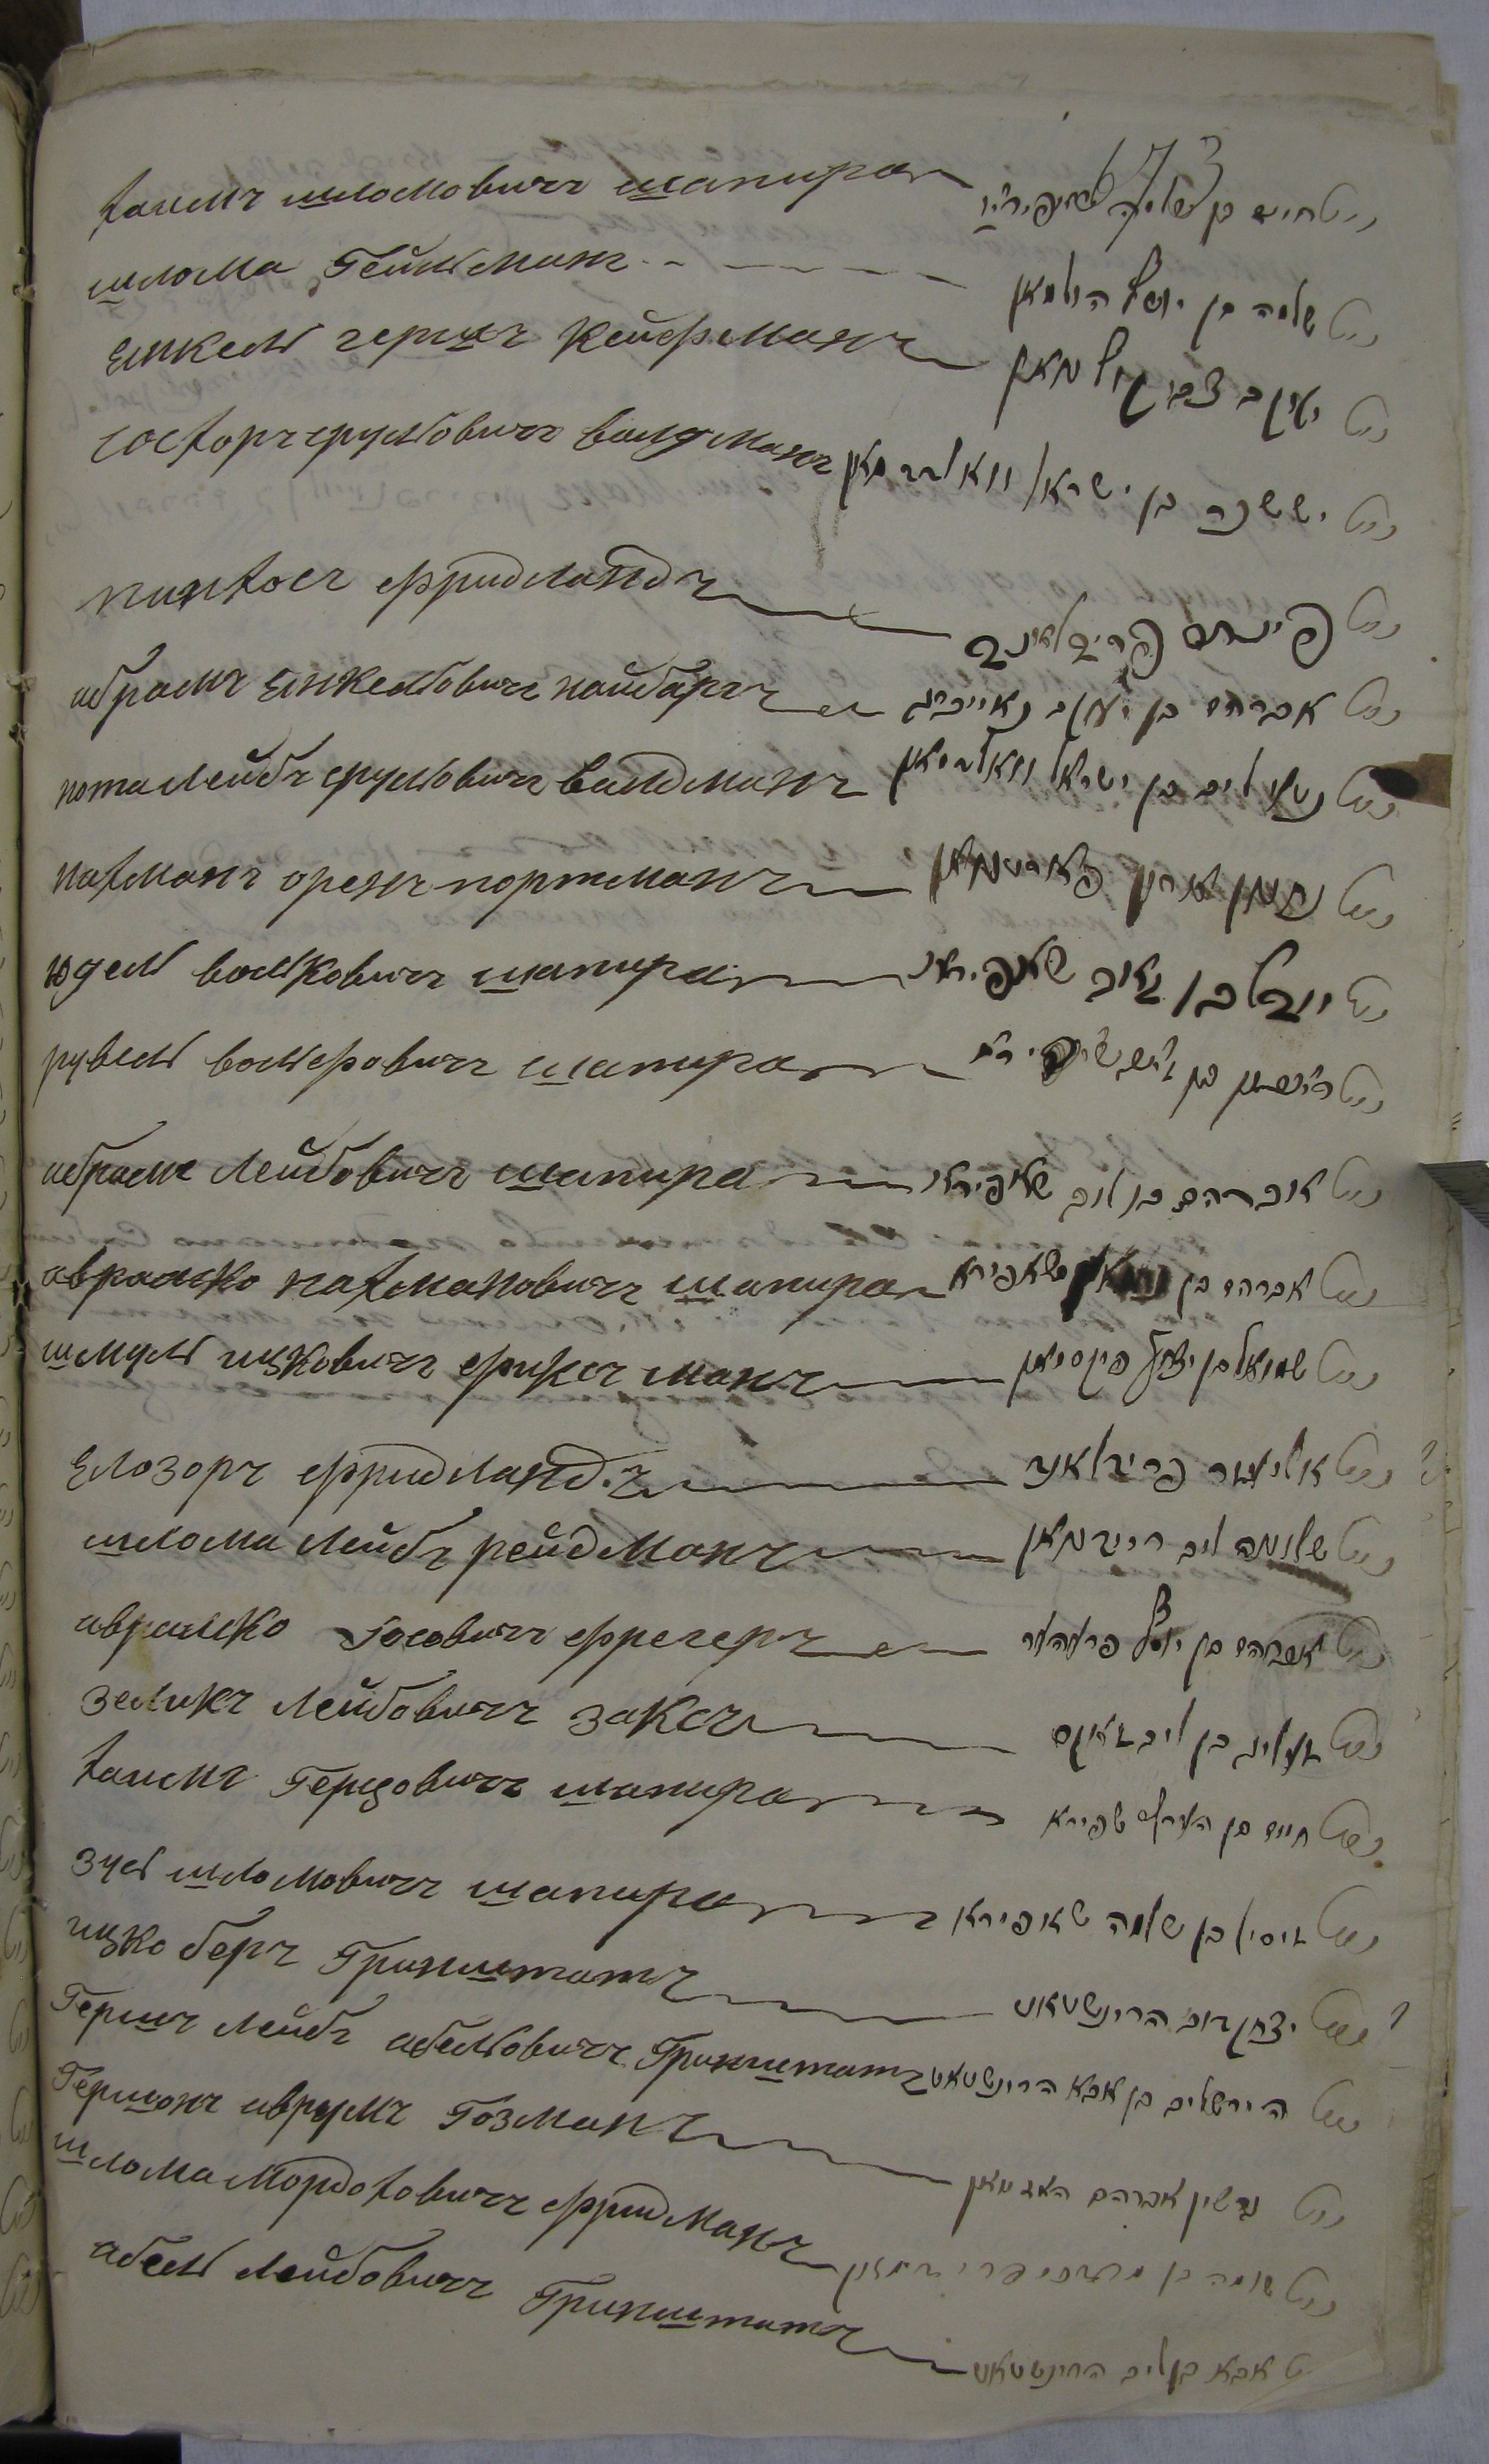 хаимъ шломовичъ шапира חיים בן שלמה שפירא
шлома Гельманъ שלמה בן יוסף העלמאן
Янкель гершъ Кейфманъ יעקב צבי קויפמאן
сохоръ срулевичъ валдманъ יששכר בן ישראל וואלדמאן
пинхосъ фридландъ פינחס פרידלאנד
абрамъ Янкелевичъ найбаргъ אברהם בן יעקב נאייברג
нота лейбъ срулевичъ валдманъ נטע ליב בן ישראל וואלדמאן
нахманъ оренъ портманъ נחמן ארון פארטמאן
юдель вольковичъ шапира יודל בן וואלף שאפירא
рувель вольфовичъ шапира ראובן בן וואלף שאפירא
абрамъ лейбовичъ шапира אברהם בן לייב שאפירא
аврамко нахмановичъ шапира אברהם בן נחמן שאפירא
шмуль ицковичъ фиксманъ שמואל בן יצחק פיקסמאן
Елозоръ фридландъ אליעזר פרידלאנד
шлома лейбъ рейдманъ שלומה ליבריידמאן
аврамко Госовичъ фрегеръ אברהם בן יוסף פרעהער
зеликъ лейбовичъ заксъ זעליג בן ליב זאקס
хаимъ Герцовичъ шапира חיים בן הערץ שפירא
зусь шломовичъ шапира זיסיל בן שלמה שאפירא
ицко беръ Гринштатъ יצחק בער הרינשטאט
Гершъ лейбъ абелевичъ Гринштатъ הירש ליב בן אבא הרינשטאט
Гершонъ аврумъ Гозманъ גרשון אברהם האזמאן
шлома мордоховичъ фридманъ שלמה בן מרדכי פרידמאן
абель лейбовичъ Гринштатъ אבא בן ליב הרינשטאט